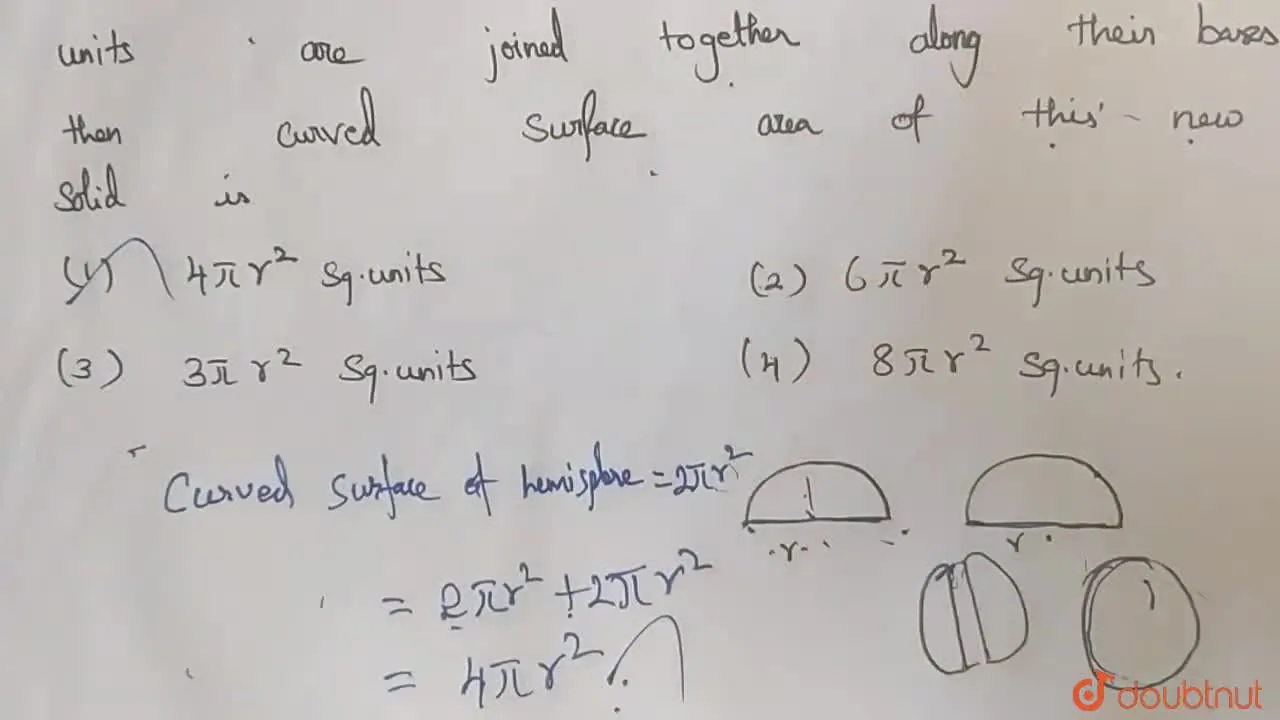 units are joined together along their bases
then curved surface area of this new
solid is
(1) 4πr² sq.units (2) 6πr² sq.units
(3) 3πr² sq.units (4) 8πr² sq.units.
Curved surface of hemisphere = 2πr²
r r
= 2πr² + 2πr²
= 4πr²
doubtnut